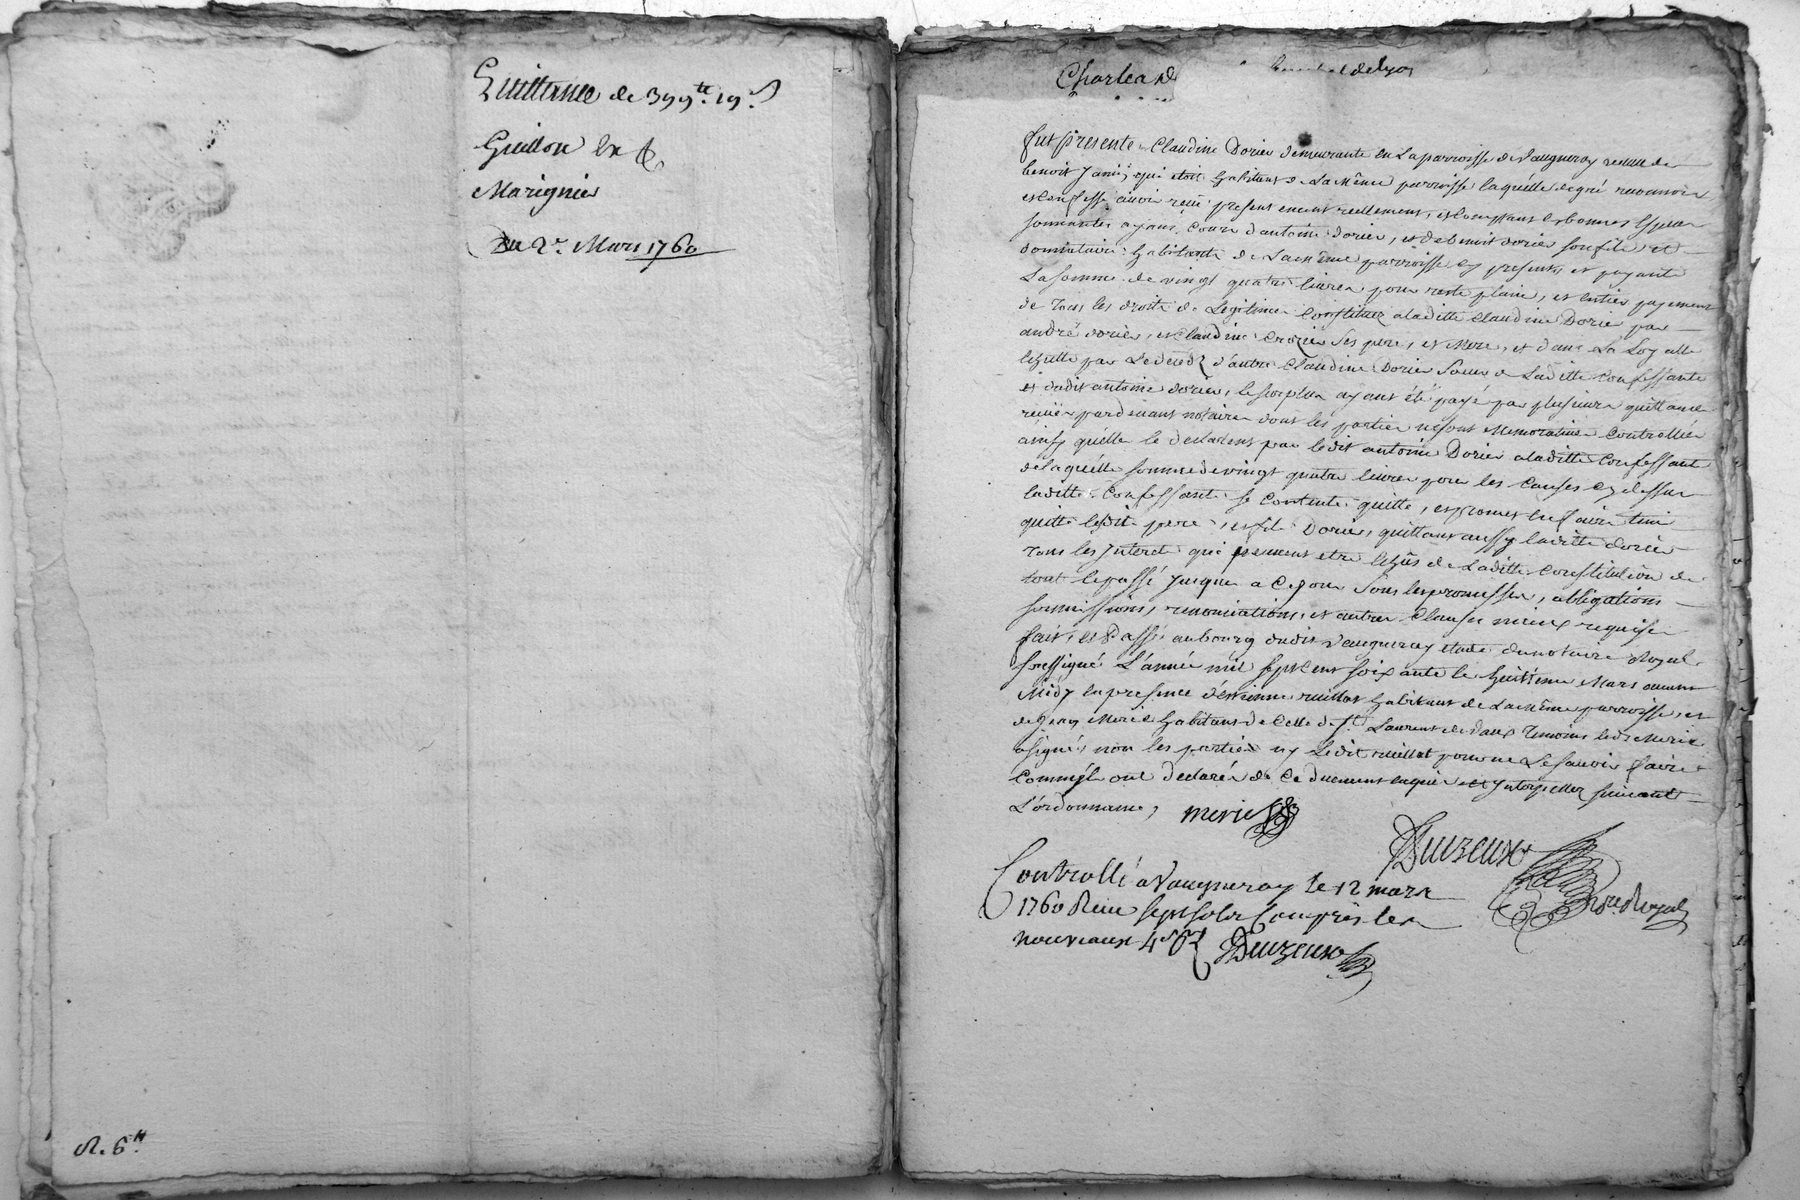 Quittance de 399ᵗᵗ. 19ˢ
Guillon
Marignier
Du 2ᵉ. Mars 1760
R. 6ᵗᵗ
Charles de
de Lyon
fut presente Claudine Dorier demeurante en La parroisse de Vaugneray veuve de
benoit qui etoit habitant de La même parroisse laquélle de gré
et confesse avoir reçu presentement reellement, et comptant en bonnes Espece
sonnantes ayant Cours d'antoine dorier, et de benoit dorier son fils et
donataire habitants de La même parroisse cy presents, et payants
La somme de vingt quatre livres pour reste plain, et entier payement
de Tous les droits de Legitime Constituez a laditte Claudine Dorier par
andré dorier, et Claudine Crozier Ses pere, et Mere, et dans La Loyalle
Echutte par Le decedz d'autre Claudine Dorier Soeur de Laditte Confessante
et dudit antoine dorier, le surplus ayant été payé par plusieurs quittance
reçuës pardevant notaires dont les parties ne sont Memoratives Controllées
ainsy quélle le declarent par ledit antoine Dorier a laditte Confessante
de laquélle somme de vingt quatre livres pour les Causes cy dessus
laditte Confessante se Contente quitte, et promet En faire tenir
quitte lesdit pere, et fils Dorier, quittant aussy laditte dorier
Tous les Jnterets qui peuvent etre Echûs de Laditte Constitution de
tout le passé Jusques a Ce Jour Sous les promesses, obligations
soumissions, renonciations, et autres Clauses mieux requises
fait, et Passé au bourg dudit Vaugneray etude du notaire Royal
soussigné L'année mil sept cent soixante le huitième Mars avant
Midy en presence d'Estienne ruillat habitant de La même parroisse, et
de Jean Meric habitant de Celle de Sᵗ. Laurent de Vaux Temoins ledᵗ Meric
a signé, non les parties ny Ledit ruillat pour ne Le sçavoir faire
Comm'jls ont declarés de Ce duement enquis et Jnterpellez suivant
L'ordonnance,
meric
Duizeux
nᵒʳᵉ Royal
Controllé a Vaugneray le 12 mars
1760 Reçu sept sols Compris les
nouveaux 4ˢ pᵣ £ Duizeux